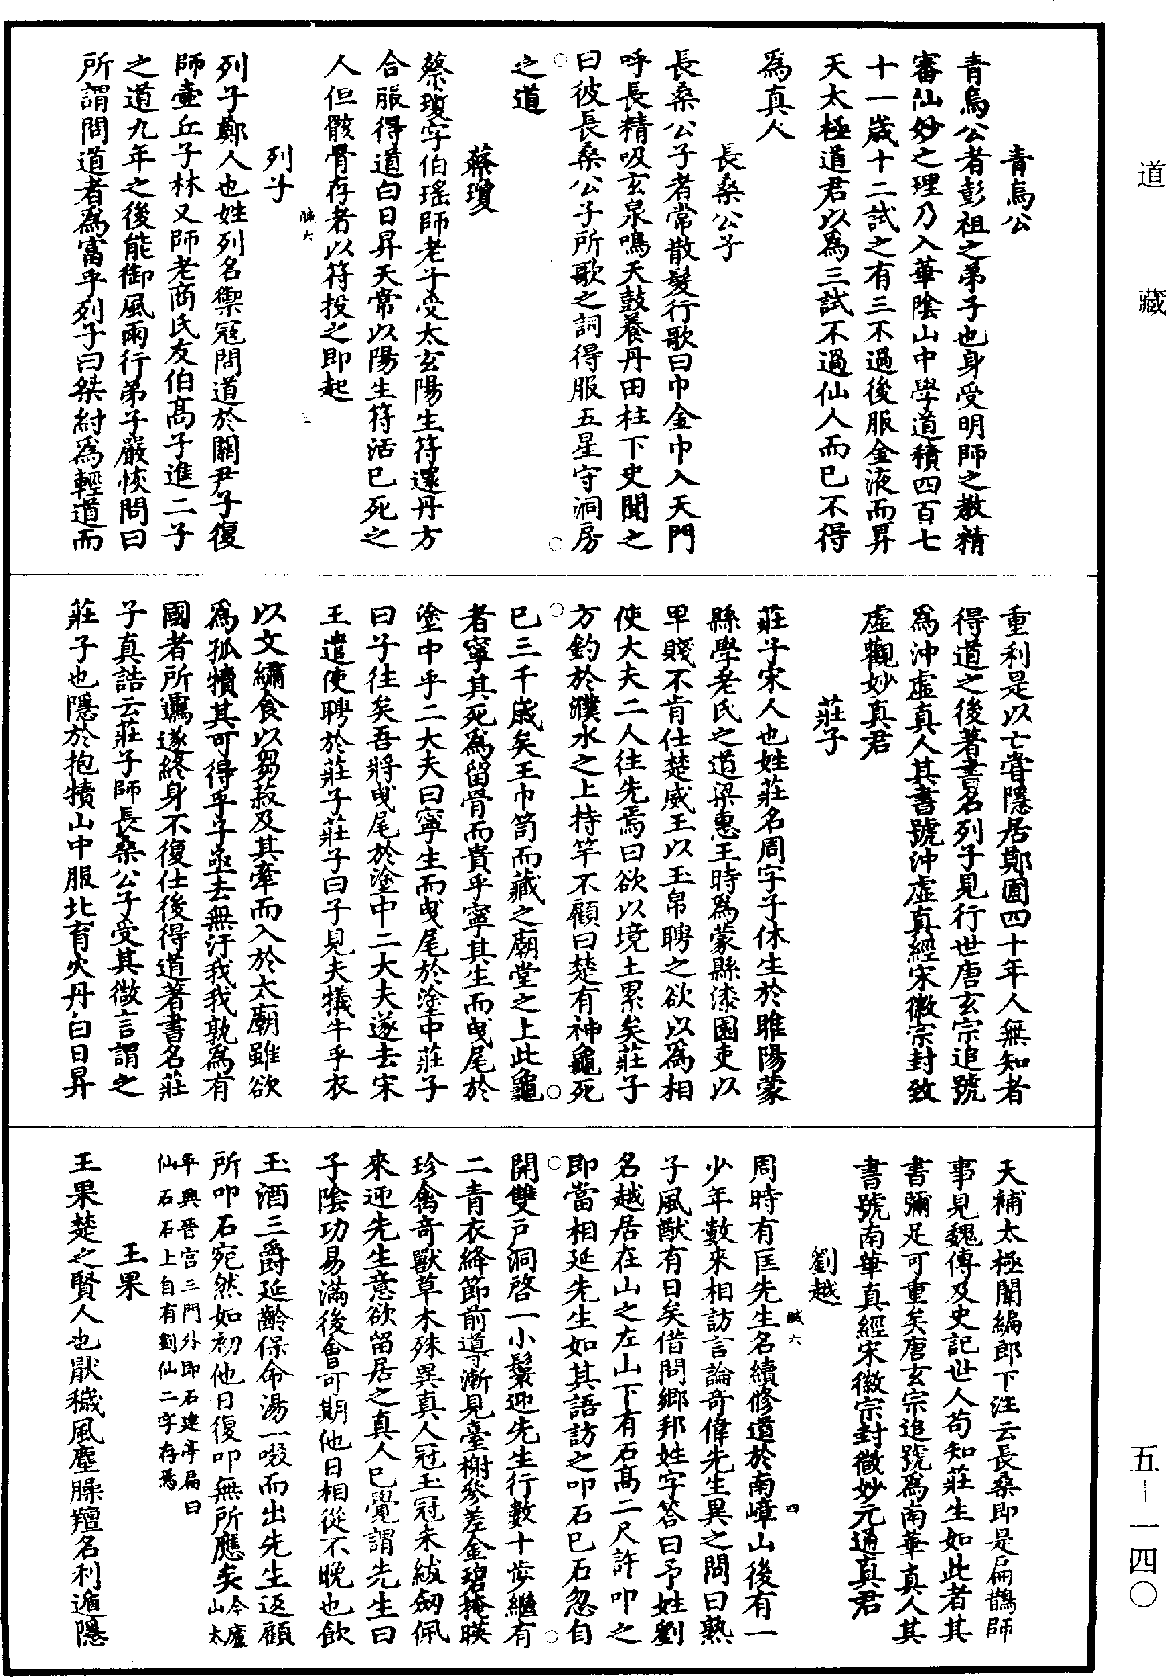 道藏
五－一四〇
青烏公
青烏公者彭祖之弟子也身受明師之教精
審仙妙之理乃入華陰山中學道積四百七
十一歲十二試之有三不過後服金液而昇
天太極道君以為三試不過仙人而已不得
為真人
長桑公子
長桑公子者常散髮行歌曰巾金巾入天門
呼長精吸玄泉鳴天鼓養丹田柱下史聞之
曰彼長桑公子所歌之詞得服五星守洞房
之道
蔡瓊
蔡瓊字伯瑤師老子受太玄陽生符還丹方
合服得道白日昇天常以陽生符活已死之
人但骸骨存者以符投之即起
列子
列子鄭人也姓列名禦寇問道於關尹子復
師壺丘子林又師老商氏友伯高子進二子
之道九年之後能御風雨行弟子嚴恢問曰
所謂問道者為富乎列子曰桀紂為輕道而
重利是以亡嘗隱居鄭圃四十年人無知者
得道之後著書名列子見行世唐玄宗追號
為沖虛真人其書號沖虛真經宋徽宗封致
虛觀妙真君
莊子
莊子宋人也姓莊名周字子休生於睢陽蒙
縣學老氏之道梁惠王時為蒙縣漆園吏以
卑賤不肯仕楚威王以玉帛聘之欲以為相
使大夫二人往先焉曰欲以境土累矣莊子
方釣於濮水之上持竿不顧曰楚有神龜死
已三千歲矣王巾笥而藏之廟堂之上此龜
者寧其死為留骨而貴乎寧其生而曳尾於
塗中乎二大夫曰寧生而曳尾於塗中莊子
曰子往矣吾將曳尾於塗中二大夫遂去宋
王遣使聘於莊子莊子曰子見夫犧牛乎衣
以文繡食以芻菽及其牽而入於太廟雖欲
為孤犢其可得乎子亟去無汙我我孰為有
國者所羈遂終身不復仕後得道著書名莊
子真誥云莊子師長桑公子受其微言謂之
莊子也隱於抱犢山中服北育火丹白日昇
天補太極闈編郎下注云長桑即是扁鵲師
事見魏傳及史記世人苟知莊生如此者其
書彌足可重矣唐玄宗追號為南華真人其
書號南華真經宋徽宗封微妙元通真君
劉越
周時有匡先生名續修道於南嶂山後有一
少年數來相訪言論奇偉先生異之問曰熟
子風猷有日矣借問鄉邦姓字答曰予姓劉
名越居在山之左山下有石高二尺許叩之
即當相延先生如其語訪之叩石已石忽自
開雙戶洞啓一小鬟迎先生行數十步繼有
二青衣絳節前導漸見臺榭參差金碧掩暎
珍禽奇獸草木殊異真人冠玉冠朱紱劒佩
來迎先生意欲留居之真人已覺謂先生曰
子陰功易滿後會可期他日相從不晚也飲
玉酒三爵延齡保命湯一啜而出先生返顧
所叩石宛然如初他日復叩無所應矣今廬山太
平興唐宮三門外即石建亭扁曰
仙石石上自有劉仙二字存焉
王果
王果楚之賢人也厭穢風塵臊羶名利遁隱